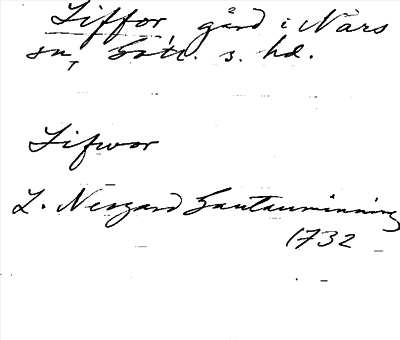 Liffor, gård i Närs
sn, Gotl. s. hd.
Lifwor
L. Neogard Gautauminning
1732